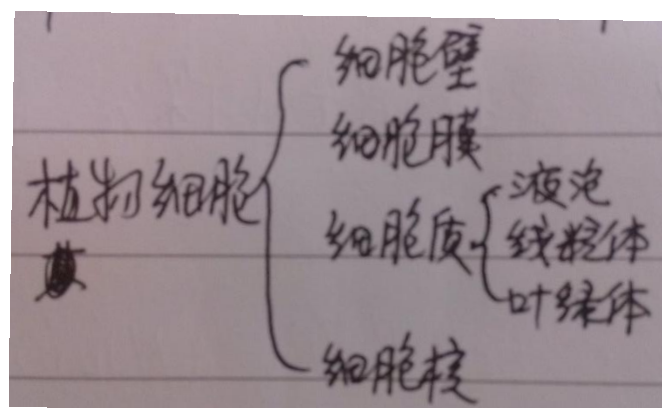 植物细胞
细胞壁
细胞膜
细胞质
液泡
线粒体
叶绿体
细胞核